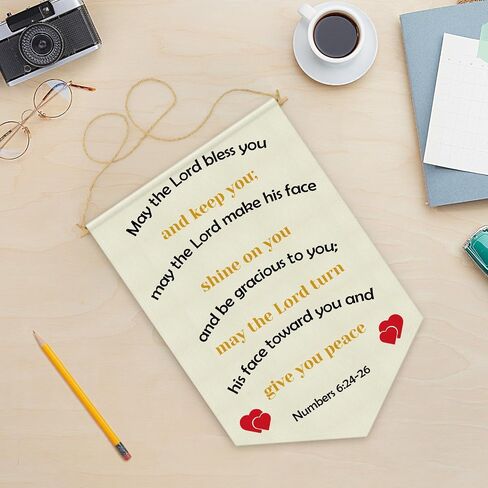 May the Lord bless you
and keep you;
may the Lord make his face
shine on you
and be gracious to you;
may the Lord turn
his face toward you and
give you peace
Numbers 6:24-26